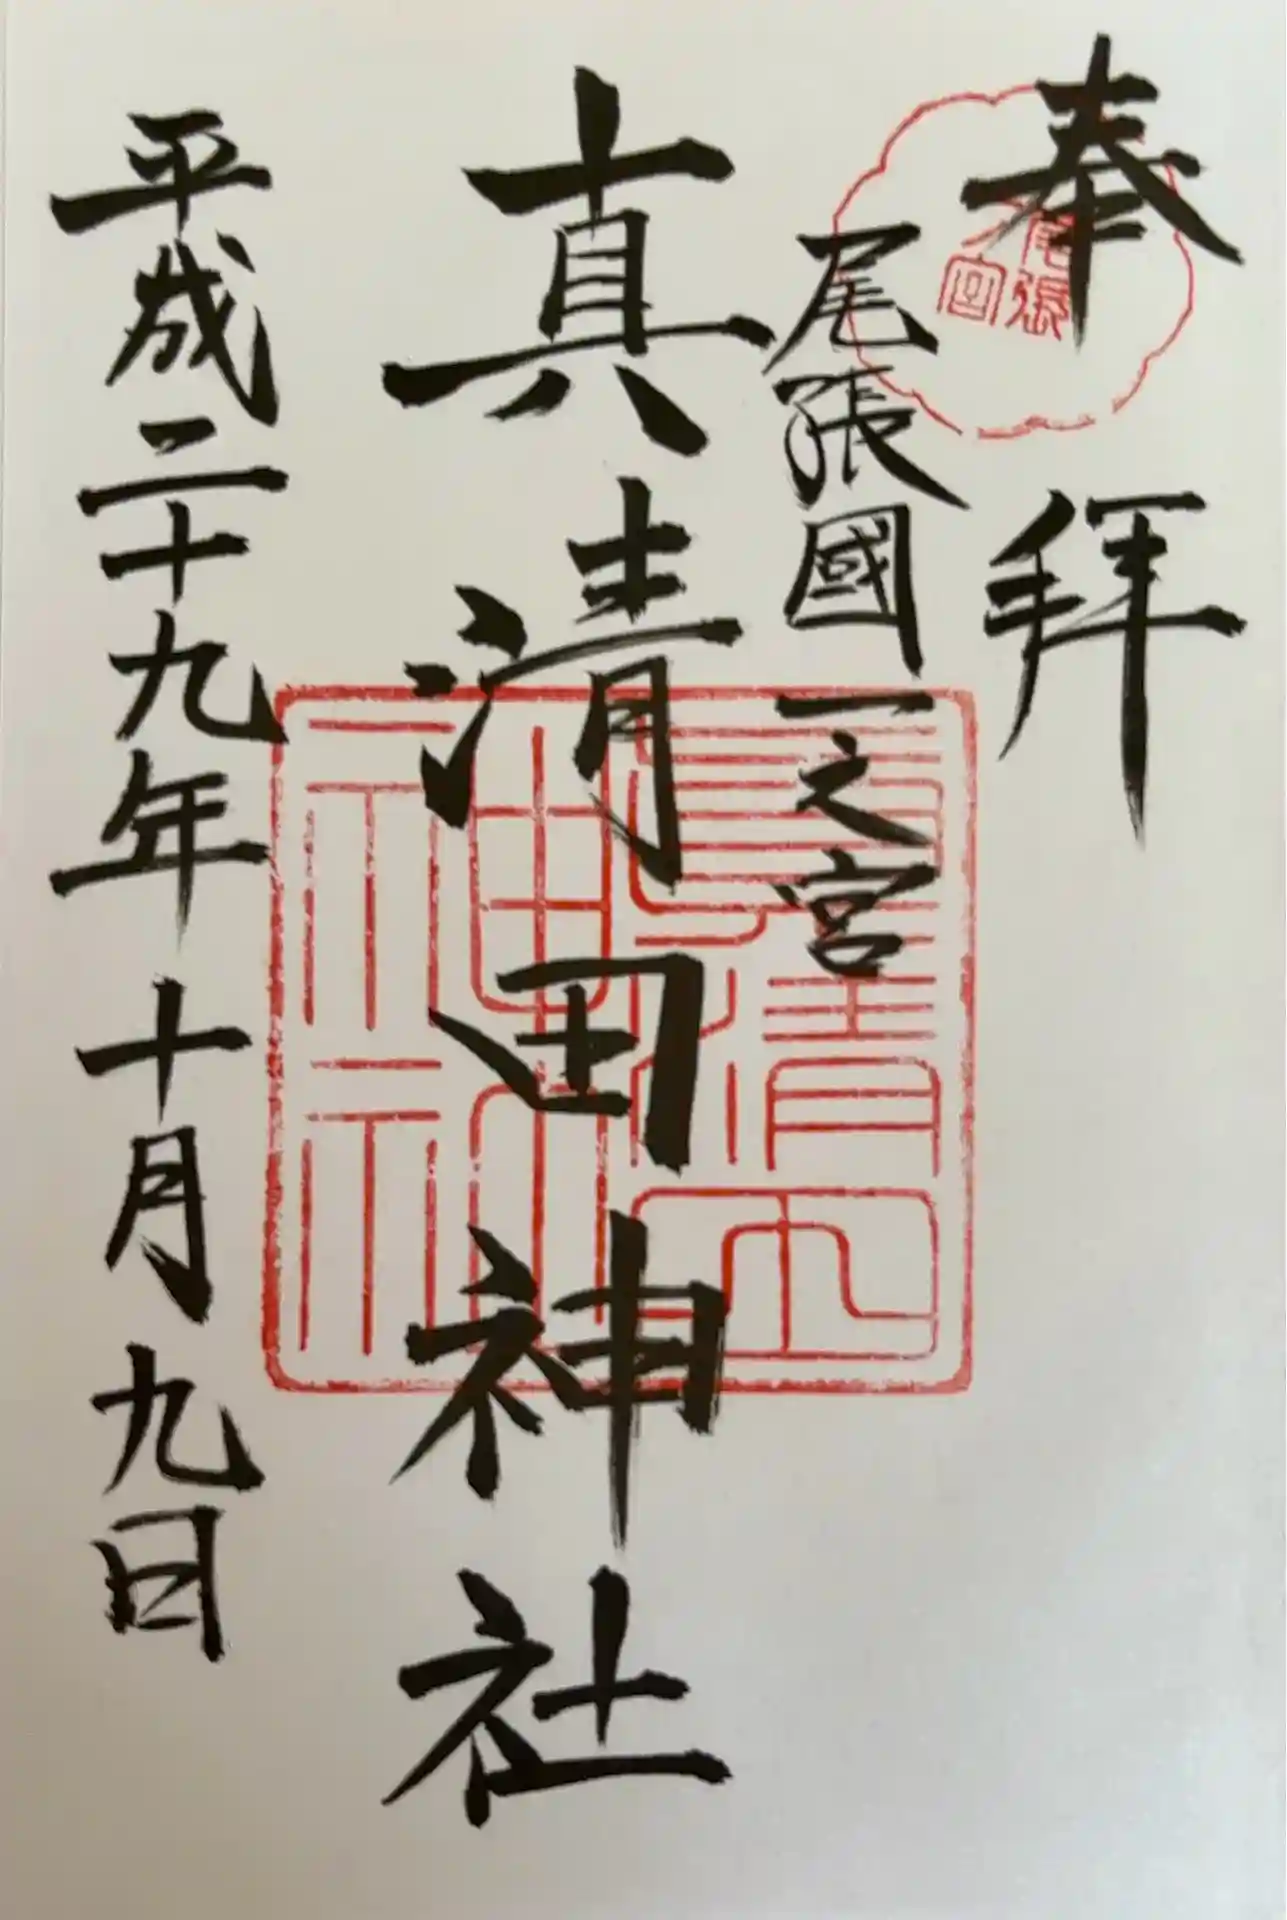 奉拝
尾張國一之宮
真清田神社
平成二十九年十月九日
真清田
神社
尾張